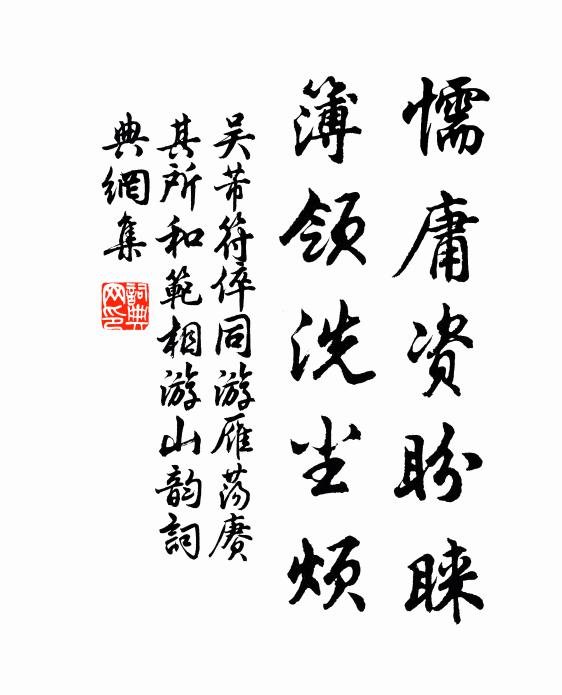 懦庸资盼睐
簿领洗尘烦
吴芾符倅同游雁荡赓
其所和範相游山韵詞
典網集
詞典
网印